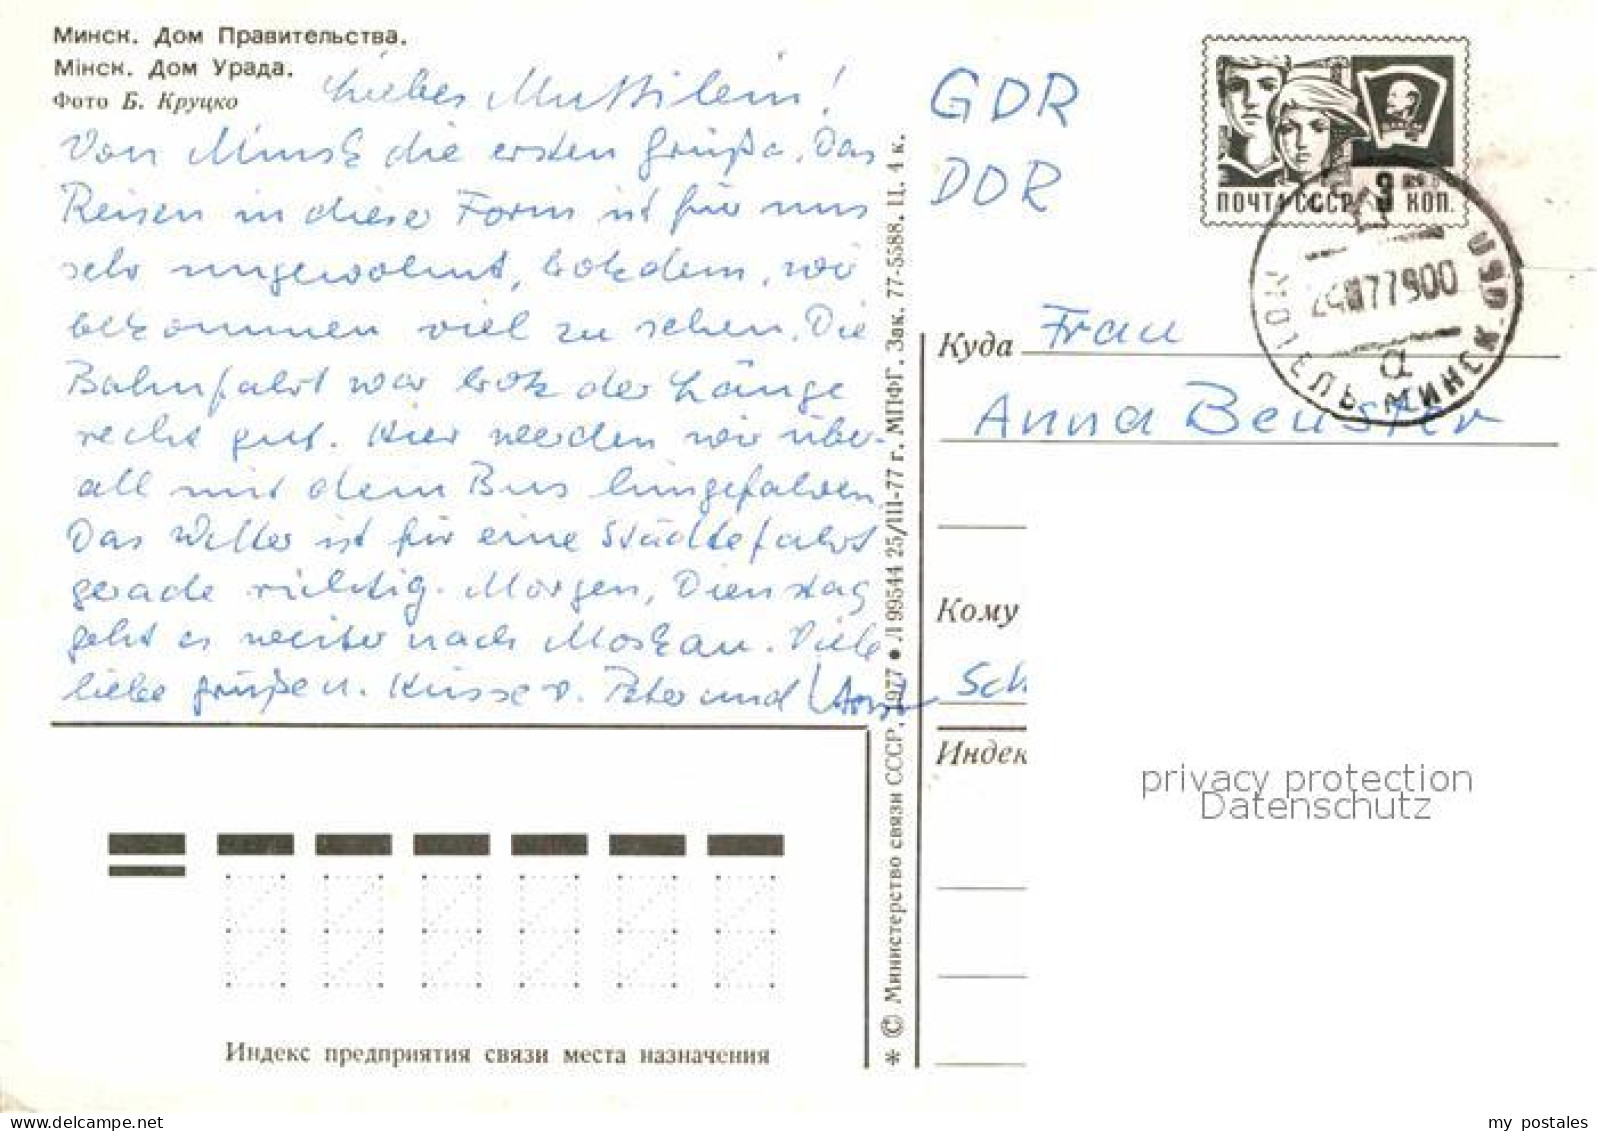 Минск. Дом Правительства.
Мінск. Дом Урада.
Фото Б. Круцко
Liebes Muttilein!
Von Minsk die ersten Grüße. Das
Reisen in dieser Form ist für uns
sehr ungewohnt, trotzdem, wir
bekommen viel zu sehen. Die
Bahnfahrt war trotz der Länge
recht gut. Hier werden wir über-
all mit dem Bus hingefahren.
Das Wetter ist für eine Städtefahrt
gerade richtig. Morgen, Dienstag
geht es weiter nach Moskau. Viele
liebe Grüße u. Küsse v. Peter und Horst
Индекс предприятия связи места назначения
* © Министерство связи СССР, 1977 • Л 99544 25/III-77 г. МПФГ. Зак. 77-5588. Ц. 4 к.
GDR
DDR
ПОЧТА СССР 3 КОП.
77900
МИНСК
Куда Frau
Anna Beuster
Кому
Sch
Индек
privacy protection
Datenschutz
www.delcampe.net
my_postales